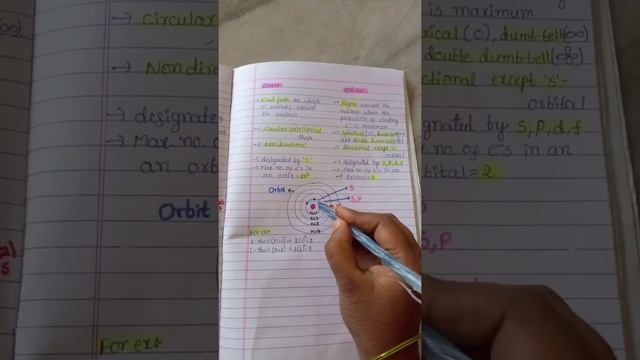 Orbit
→ Fixed path on which
e⁻ revolves around
the nucleus
→ Circular (or) elliptical
shape
→ Non directional
→ designated by 'n'
→ Max no. of e⁻s in
an orbit = 2n²
Orbital
→ Region around the
nucleus where the
probability of finding
e⁻ is maximum
→ Spherical (O), dumb-bell (∞)
and double dumb-bell
→ directional except 's'-
orbital
→ designated by s, p, d, f
→ Max no. of e⁻s in an
orbital = 2
Orbit
S
S, P
n=1
n=2
n=3
n=4
For ex:
K-shell (n=1) ⇒ 2(1)²=2
L-shell (n=2) ⇒ 2(2)²=8
→ Circular
→ Nondirec
→ designate
→ Max no.
an orbit
Orbit
For ex
is maximum
erical (O), dumb-bell (∞)
double dumb-bell
ctional except 's'-
orbital
gnated by s, p, d, f
no. of e⁻s in an
bital = 2
S
S, P